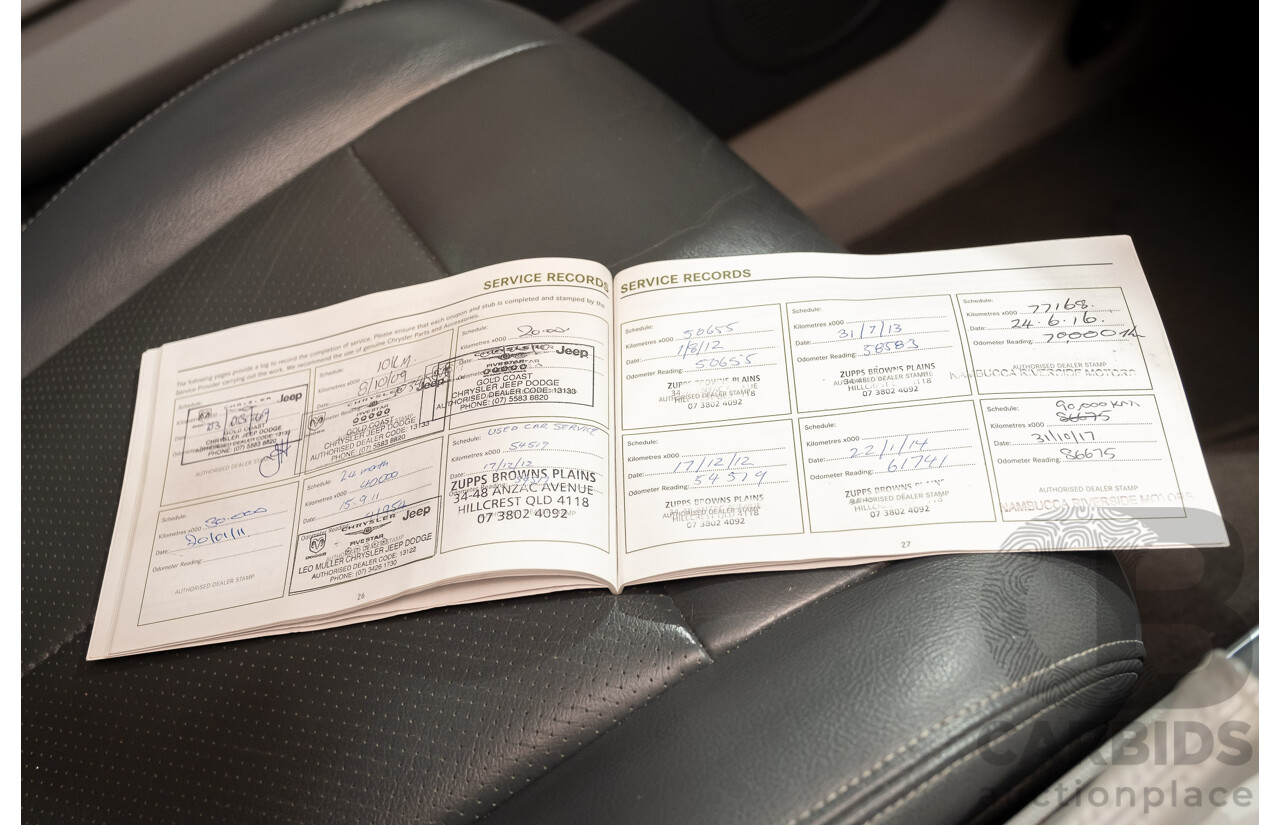 SERVICE RECORDS
The following pages provide a log to record the completion of service. Please ensure that each coupon and stub is completed and stamped by the
Service Provider carrying out the work. We recommend the use of genuine Chrysler Parts and Accessories.
Schedule:
CHRYSLER Jeep
GOLD COAST
CHRYSLER JEEP DODGE
AUTHORISED DEALER CODE:
PHONE: (07) 5583 8820
AUTHORISED DEALER
Schedule: 10K
Kilometres x000
Date: 6/10/09
Jeep
FIVE STAR
GOLD COAST
CHRYSLER JEEP DODGE
AUTHORISED DEALER CODE:
PHONE: (07) 5583 8820
Schedule:
Kilometres x000 20.00
Jeep
FIVESTAR
GOLD COAST
CHRYSLER JEEP DODGE
AUTHORISED DEALER CODE: 13133
PHONE: (07) 5583 8820
Schedule:
Kilometres x000 30.000
Date: 20/01/11.
Odometer Reading:
AUTHORISED DEALER STAMP
Schedule: 24 month
Kilometres x000 40000
Date: 15.9.11
CHRYSLER Jeep
FIVE STAR
DODGE
LEO MULLER CHRYSLER JEEP DODGE
AUTHORISED DEALER CODE: 13122
PHONE: (07) 3426 1730
USED CAR SERVICE
54519
Date: 17/12/12
ZUPPS BROWNS PLAINS
34-48 ANZAC AVENUE
HILLCREST QLD 4118
07 3802 4092
26
SERVICE RECORDS
Schedule:
Kilometres x000 50655
Date: 1/8/12
Odometer Reading: 50655
ZUPPS BROWNS PLAINS
AUTHORISED DEALER STAMP
07 3802 4092
Schedule:
Kilometres x000
Date: 31/7/13
Odometer Reading: 58583
ZUPPS BROWNS PLAINS
AUTHORISED DEALER STAMP
07 3802 4092
Schedule:
Kilometres x000 77168.
Date: 24.6.16.
Odometer Reading:
AUTHORISED DEALER STAMP
NAMBUCCA RIVERSIDE MOTORS
Schedule:
Kilometres x000
Date: 17/12/12
Odometer Reading: 54519
ZUPPS BROWNS PLAINS
AUTHORISED DEALER STAMP
07 3802 4092
Schedule:
Kilometres x000
Date: 22/1/14
Odometer Reading: 61741
ZUPPS BROWNS PLAINS
AUTHORISED DEALER STAMP
07 3802 4092
Schedule: 90,000 km
Kilometres x000 86675
Date: 31/10/17
Odometer Reading: 86675
AUTHORISED DEALER STAMP
NAMBUCCA RIVERSIDE MOTORS
27
CARBIDS
auctionplace